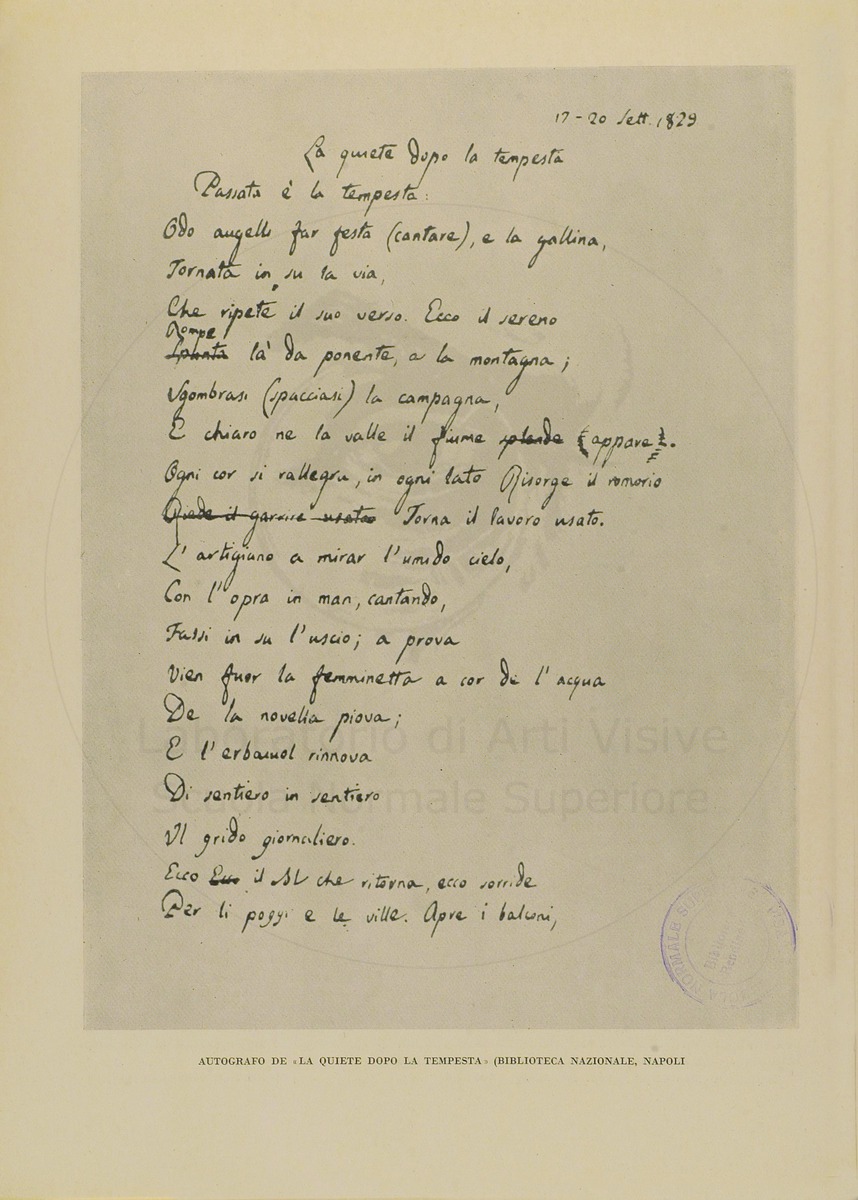 17-20 Sett. 1829
La quiete dopo la tempesta
Passata è la tempesta:
Odo augelli far festa (cantare), e la gallina,
Tornata in su la via,
Che ripete il suo verso. Ecco il sereno
Rompe
là da ponente, a la montagna;
Sgombrasi (spacciasi) la campagna,
E chiaro ne la valle il fiume splende (appare).
Ogni cor si rallegra, in ogni lato Risorge il romorio
Riede il garrire usato Torna il lavoro usato.
L'artigiano a mirar l'umido cielo,
Con l'opra in man, cantando,
Fassi in su l'uscio; a prova
Vien fuor la femminetta a cor de l'acqua
De la novella piova;
E l'erbaiuol rinnova
Di sentiero in sentiero
Il grido giornaliero.
Ecco Ecco il Sol che ritorna, ecco sorride
Per li poggi e le ville. Apre i balconi,
Laboratorio di Arti Visive
Scuola Normale Superiore
AUTOGRAFO DE «LA QUIETE DOPO LA TEMPESTA» (BIBLIOTECA NAZIONALE, NAPOLI